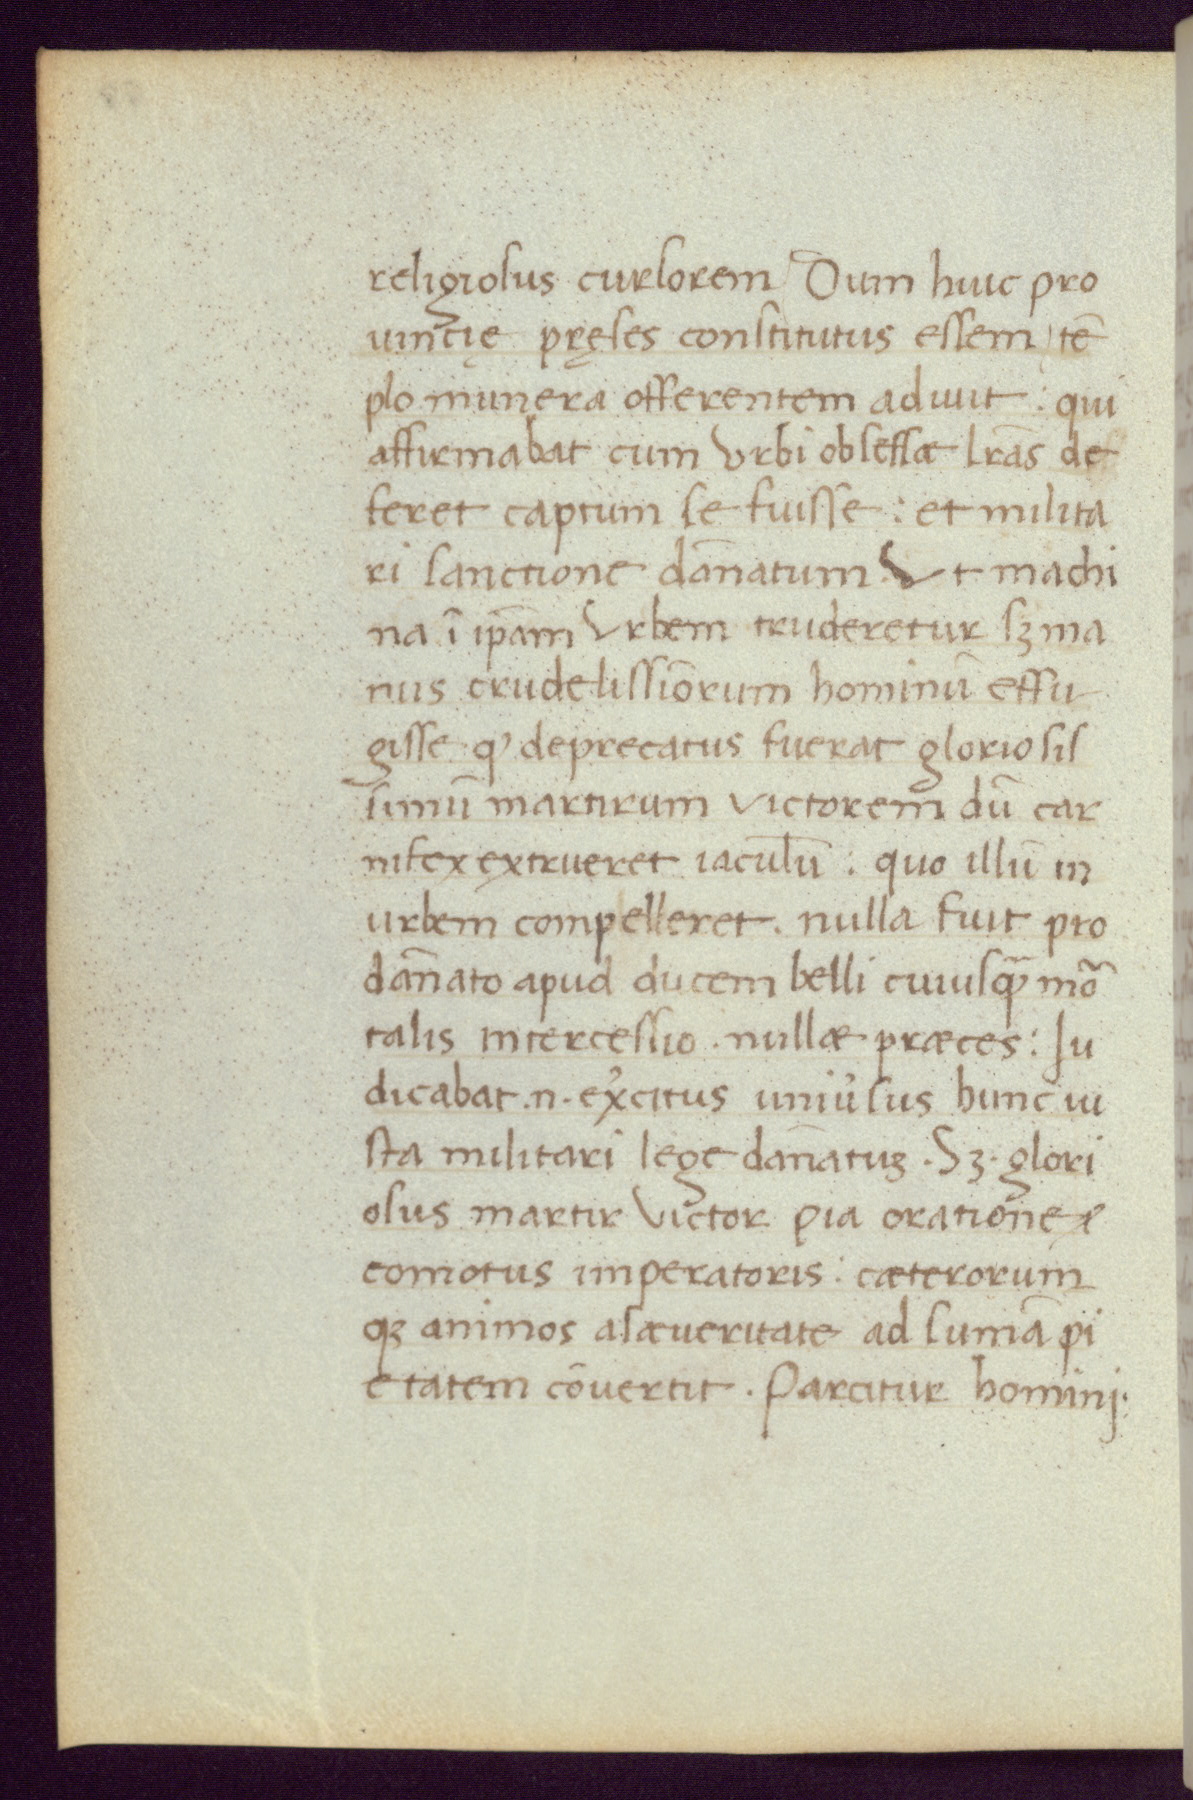 religiosus cursorem Dum huic pro
uincię pręses constitutus essem tē
plo munera offerentem adiuit : qui
affirmabat cum Vrbi obsessæ lr̄as de
feret captum se fuisse : et milita
ri sanctione dānatum . Vt machi
na ī ip̄am Vrbem truderetur sꝫ ma
nus crudelissīorum hominū effu
gisse qͻ deprecatus fuerat gloriosis
simū martirum victorem dū car
nifex extrueret iaculū : quo illū in
urbem compelleret . nulla fuit pro
dānato apud ducem belli cuiusq̄ mor̄
talis intercessio . nullæ præces : Iu
dicabat .n. ex̕citus uniu̕sus hunc iu
sta militari lege dānatuꝫ . Sꝫ . glori
osus martir Victor pia oratione &
comotus imperatoris : cæterorum
qꝫ animos asæueritate ad sumā pi
etatem cōuertit . Parcitur homini .